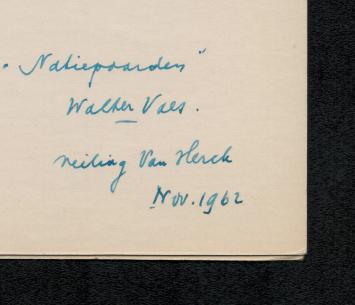 "Natiepaarden"
Walter Vaes.
veiling Van Herck
Nov. 1962